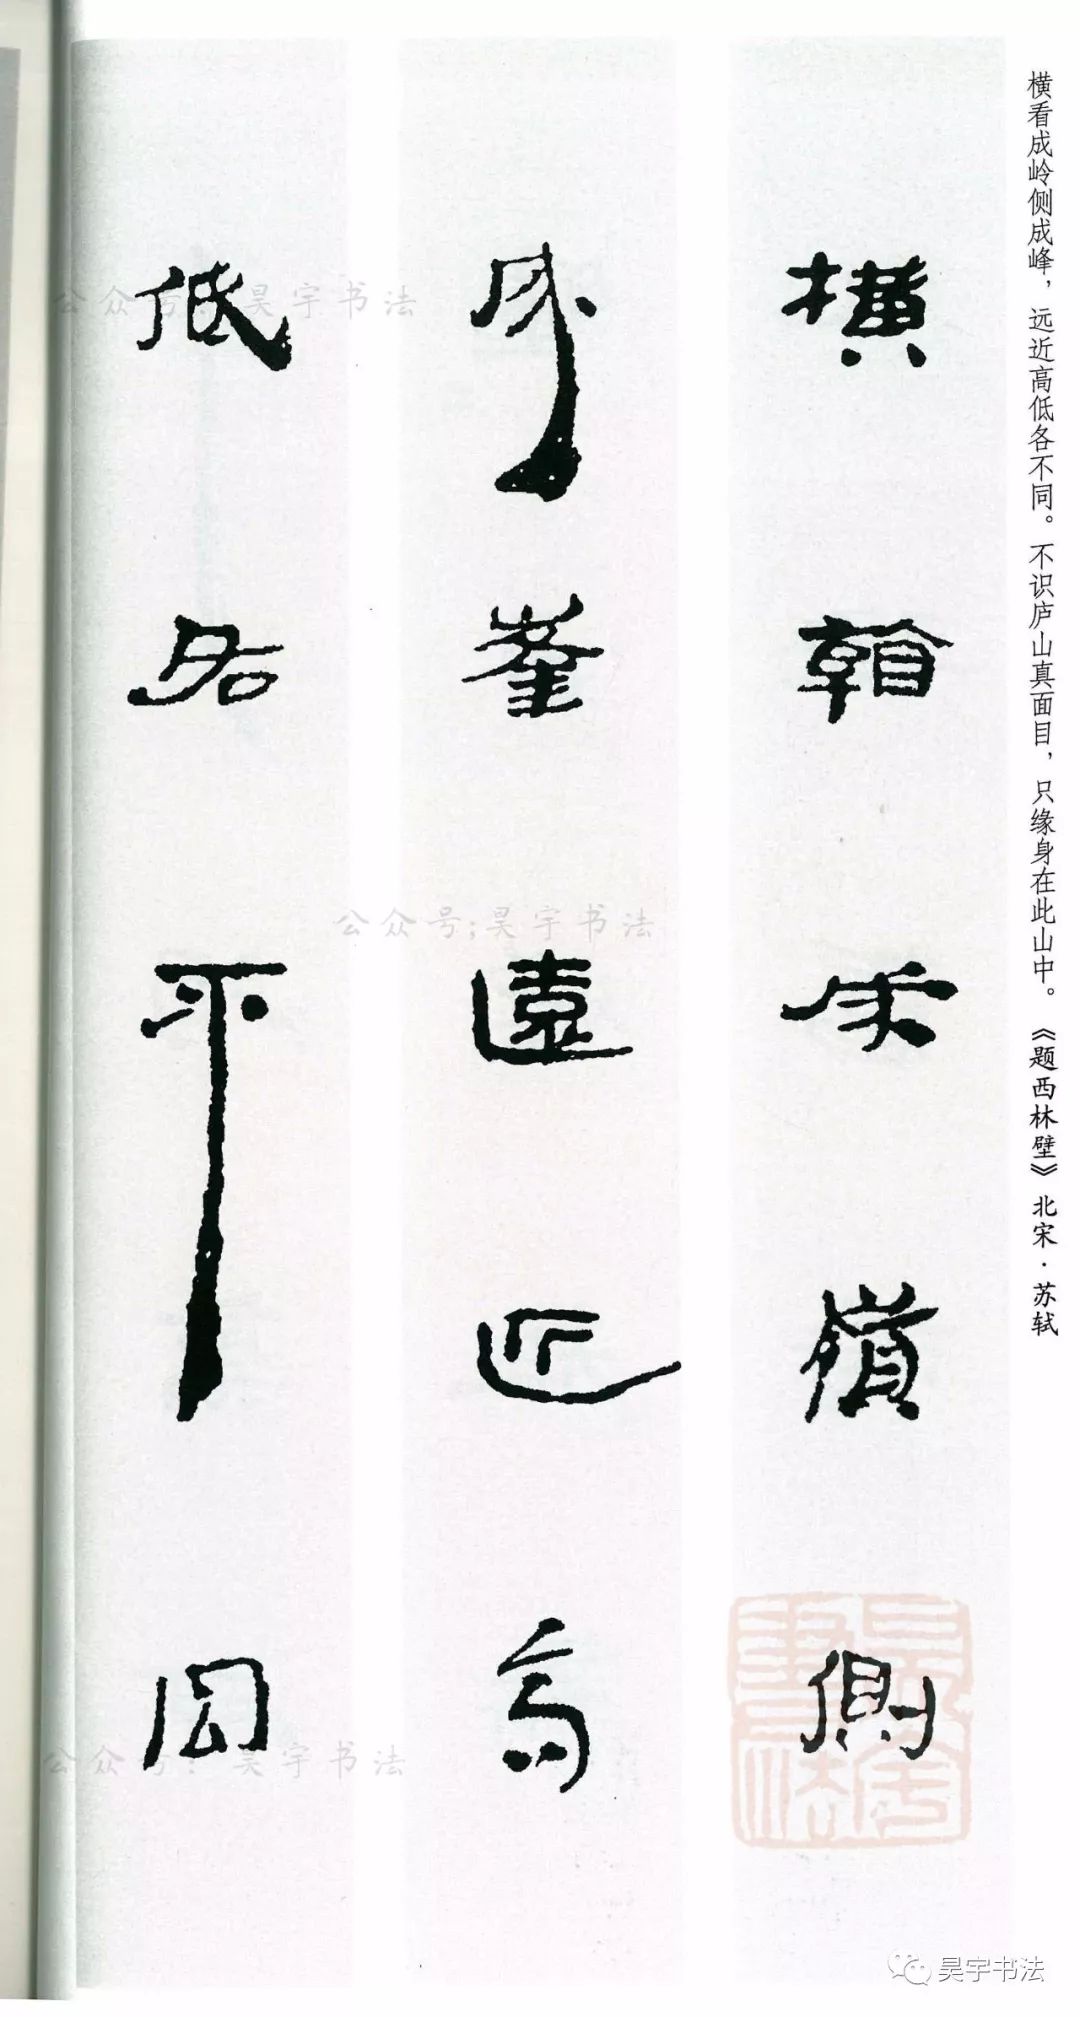 横看成岭侧成峰，远近高低各不同。不识庐山真面目，只缘身在此山中。《题西林壁》北宋·苏轼
橫看成嶺側
成峯遠近高
低各不同
公众号:昊宇书法
公众号;昊宇书法
公众号:昊宇书法
昊宇书法
昊宇书法